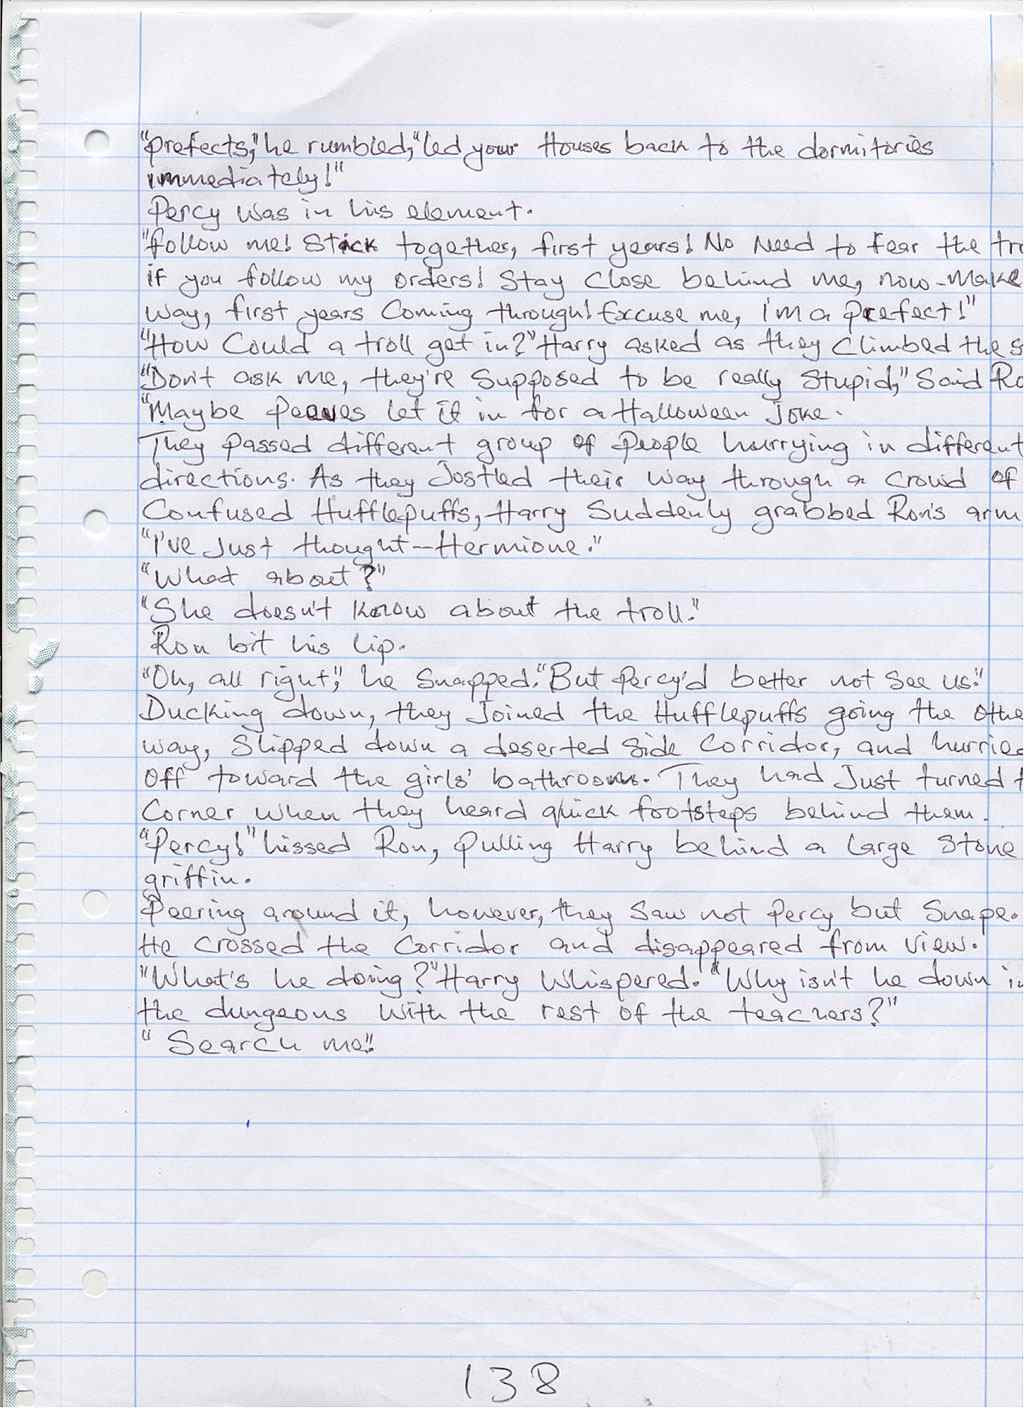 "Prefects," he rumbled, "led your Houses back to the dormitories
immediately!"
Percy was in his element.
"follow me! Stick together, first years! No Need to Fear the tro
if you follow my orders! Stay Close behind me, now-Make
way, first years Coming through! Excuse me, I'm a Prefect!"
"How Could a troll get in?" Harry asked as they Climbed the s
"Don't ask me, they're Supposed to be really Stupid," Said Ro
"Maybe Peeves let it in for a Halloween Joke.
They passed different group of People hurrying in different
directions. As they Jostled their way through a crowd of
Confused Hufflepuffs, Harry Suddenly grabbed Ron's arm
"I've Just thought—Hermione."
"What about?"
"She doesn't Know about the troll."
Ron bit his lip.
"Oh, all right," he Snapped. "But Percy'd better not See us."
Ducking down, they Joined the Hufflepuffs going the othe
way, Slipped down a deserted Side Corridor, and hurried
off toward the girls' bathroom. They had Just turned t
Corner when they heard quick footsteps behind them.
"Percy!" hissed Ron, Pulling Harry behind a Large Stone
griffin.
Peering around it, however, they Saw not Percy but Snape.
He crossed the Corridor and disappeared from view.
"What's he doing?" Harry Whispered. "Why isn't he down in
the dungeons with the rest of the teachers?"
" Search me."
138